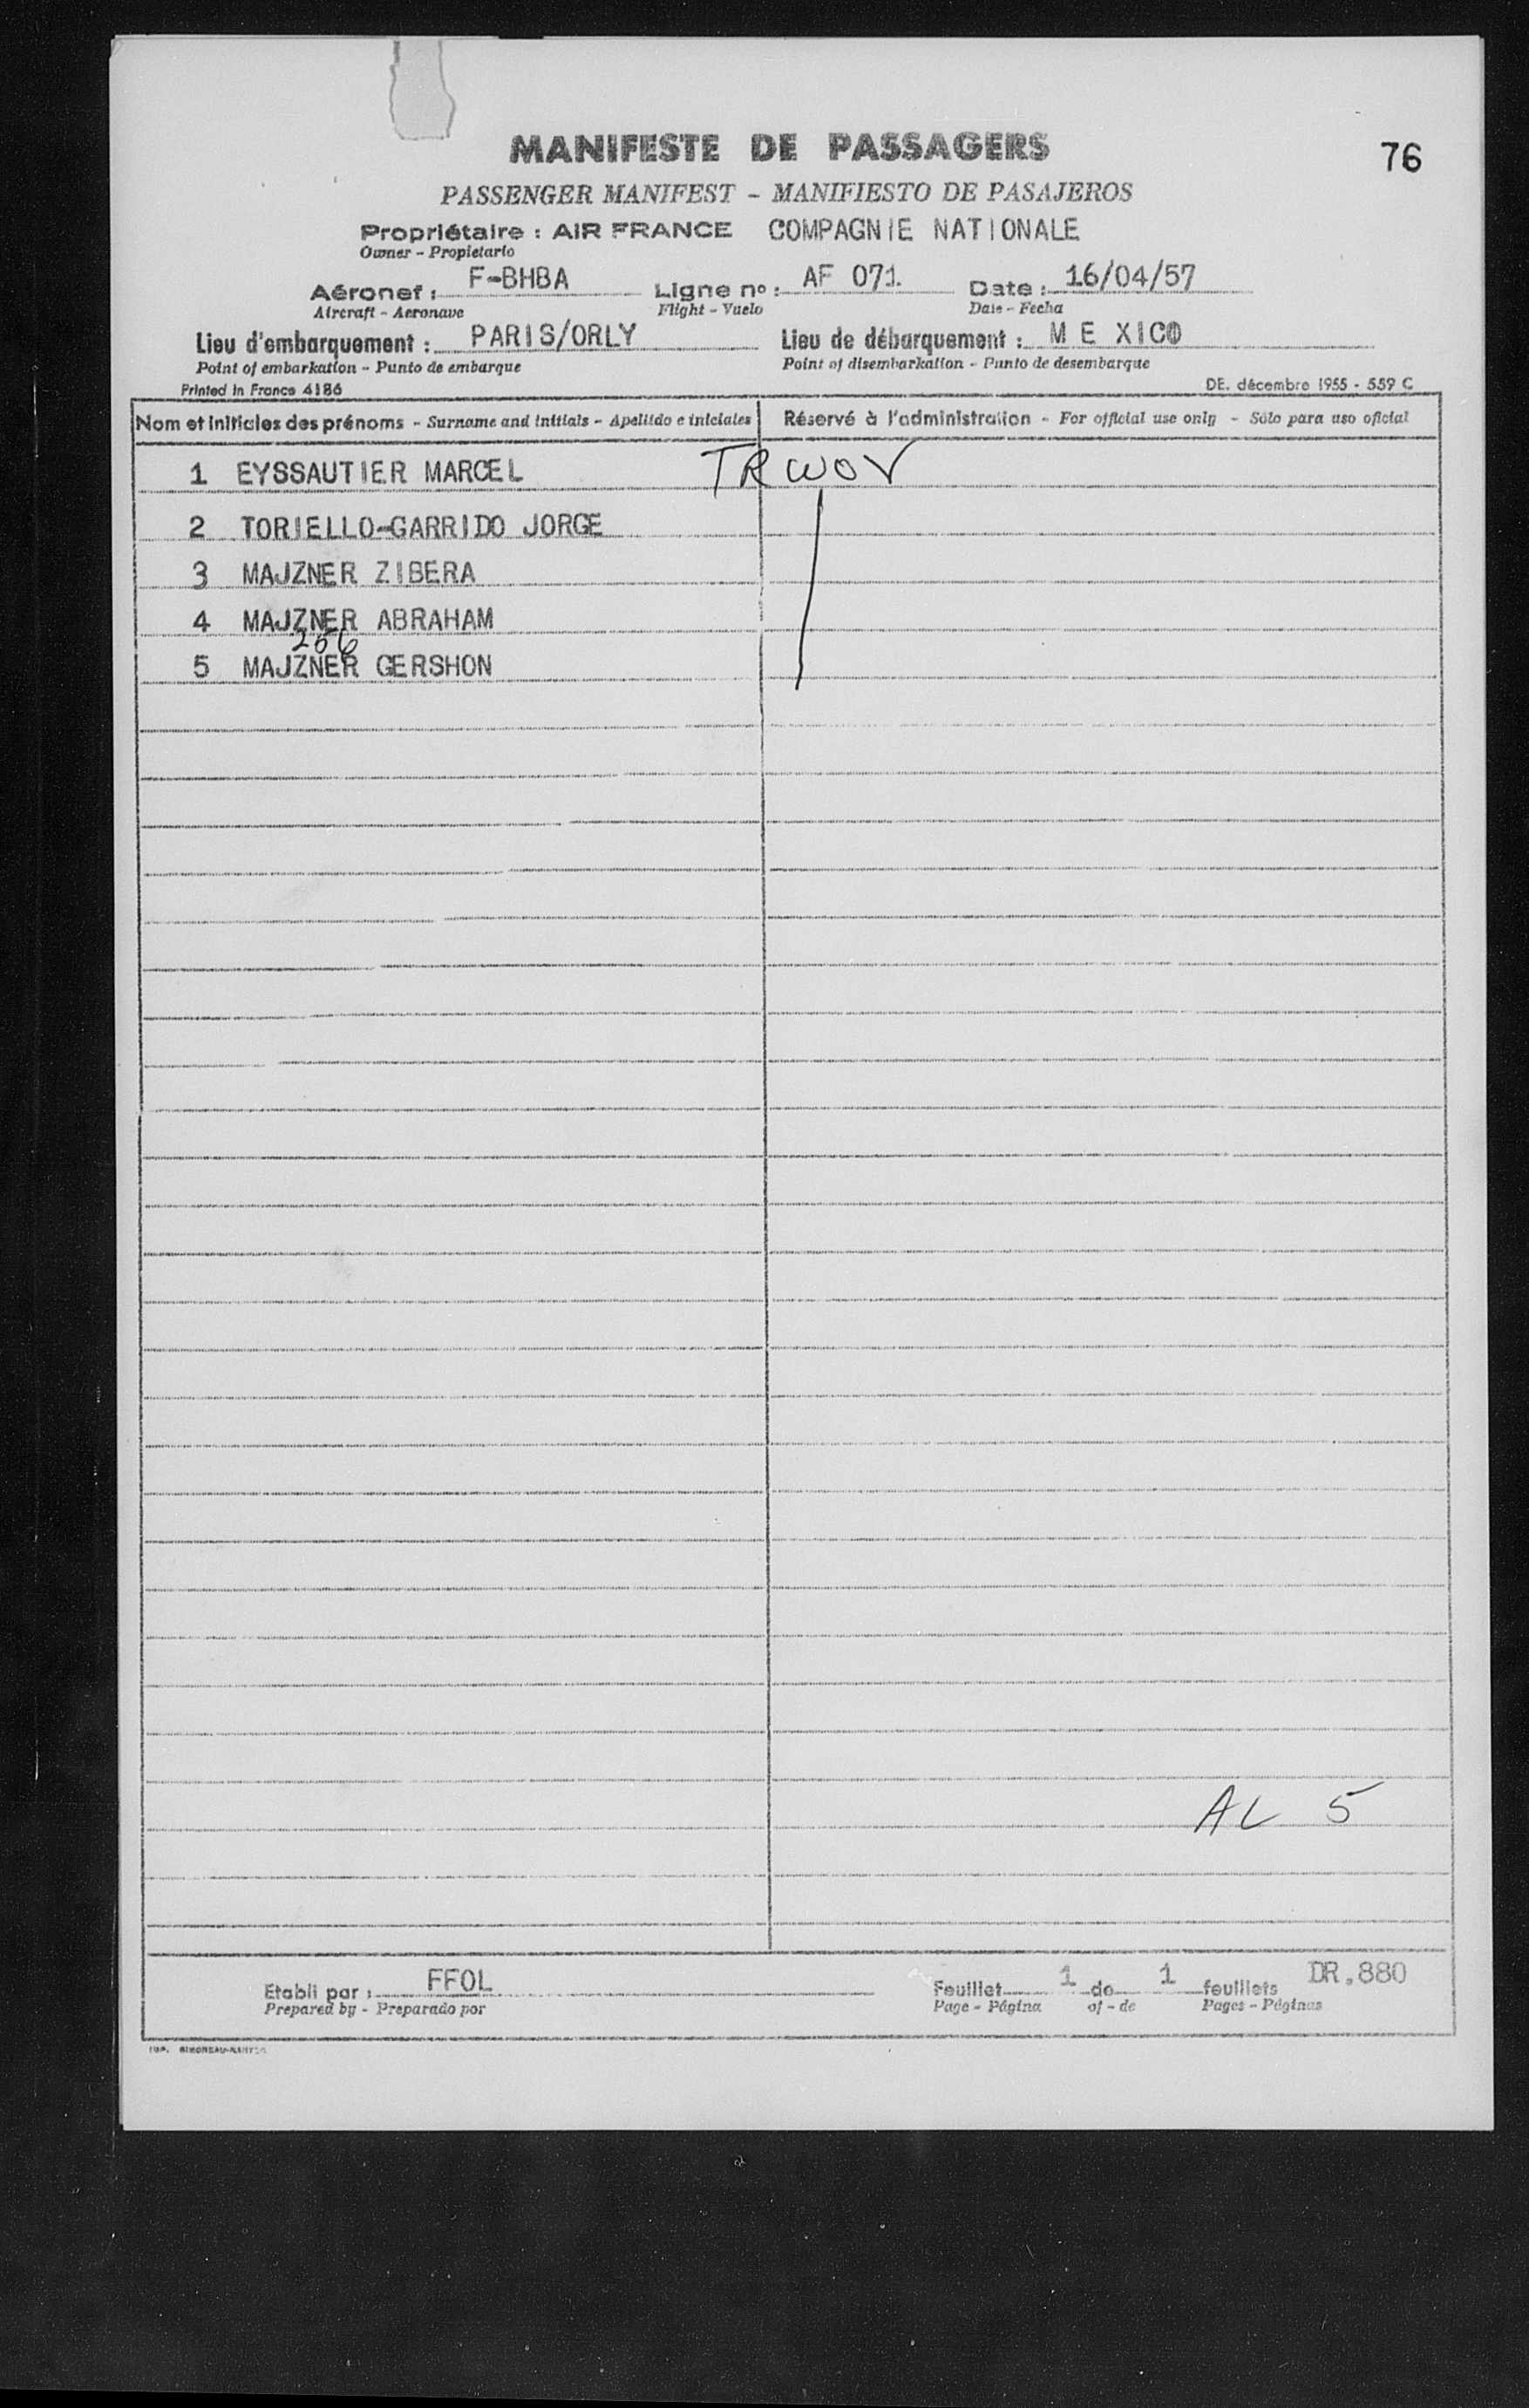 76
MANIFESTE DE PASSAGERS
PASSENGER MANIFEST - MANIFIESTO DE PASAJEROS
Propriétaire : AIR FRANCE COMPAGNIE NATIONALE
Owner - Propietario
Aéronef : F-BHBA Ligne nº : AF 071. Date : 16/04/57
Aircraft - Aeronave Flight - Vuelo Date - Fecha
Lieu d'embarquement : PARIS/ORLY Lieu de débarquement : M E XICO
Point of embarkation - Punto de embarque Point of disembarkation - Punto de desembarque
Printed in France 4186 DE. décembre 1955 - 559 C
Nom et initiales des prénoms - Surname and initials - Apellido e iniciales Réservé à l'administration - For official use only - Sólo para uso oficial
1 EYSSAUTIER MARCEL TRWOV
2 TORIELLO-GARRIDO JORGE
3 MAJZNER ZIBERA
4 MAJZNER ABRAHAM
256
5 MAJZNER GERSHON
AL 5
Etabli par : FFOL Feuillet 1 de 1 feuillets DR.880
Prepared by - Preparado por Page - Página of - de Pages - Páginas
IMP.